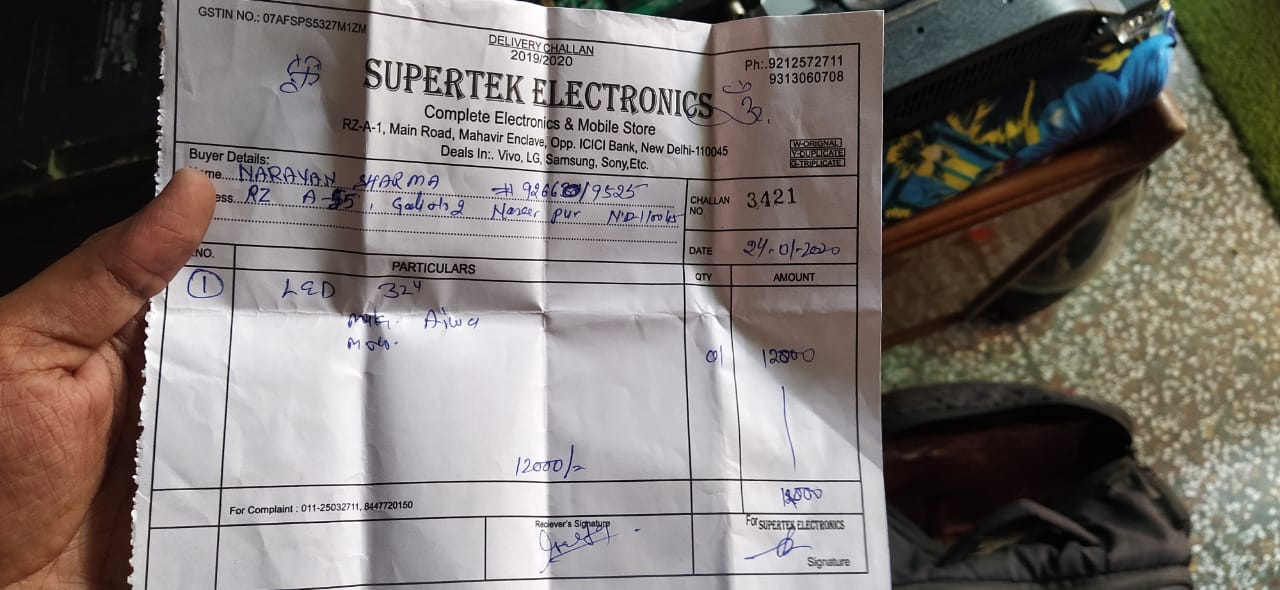 GSTIN NO.: 07AFSPS5327M1ZM
DELIVERY CHALLAN
2019/2020
Ph:.9212572711
9313060708
SUPERTEK ELECTRONICS
Complete Electronics & Mobile Store
RZ-A-1, Main Road, Mahavir Enclave, Opp. ICICI Bank, New Delhi-110045
Deals In:. Vivo, LG, Samsung, Sony,Etc.
W-ORIGNAL
Y-DUPLICATE
Buyer Details:
me. NARAYAN SHARMA
ess. RZ A- Gali No 2 Naseer pur N.D-110045
CHALLAN NO 3421
DATE 24-01-2020
.NO. PARTICULARS QTY AMOUNT
1 LED 32"
Aiwa
01 12000
12000/-
12000
For Complaint : 011-25032711, 8447720150
Reciever's Signature
For SUPERTEK ELECTRONICS
Signature